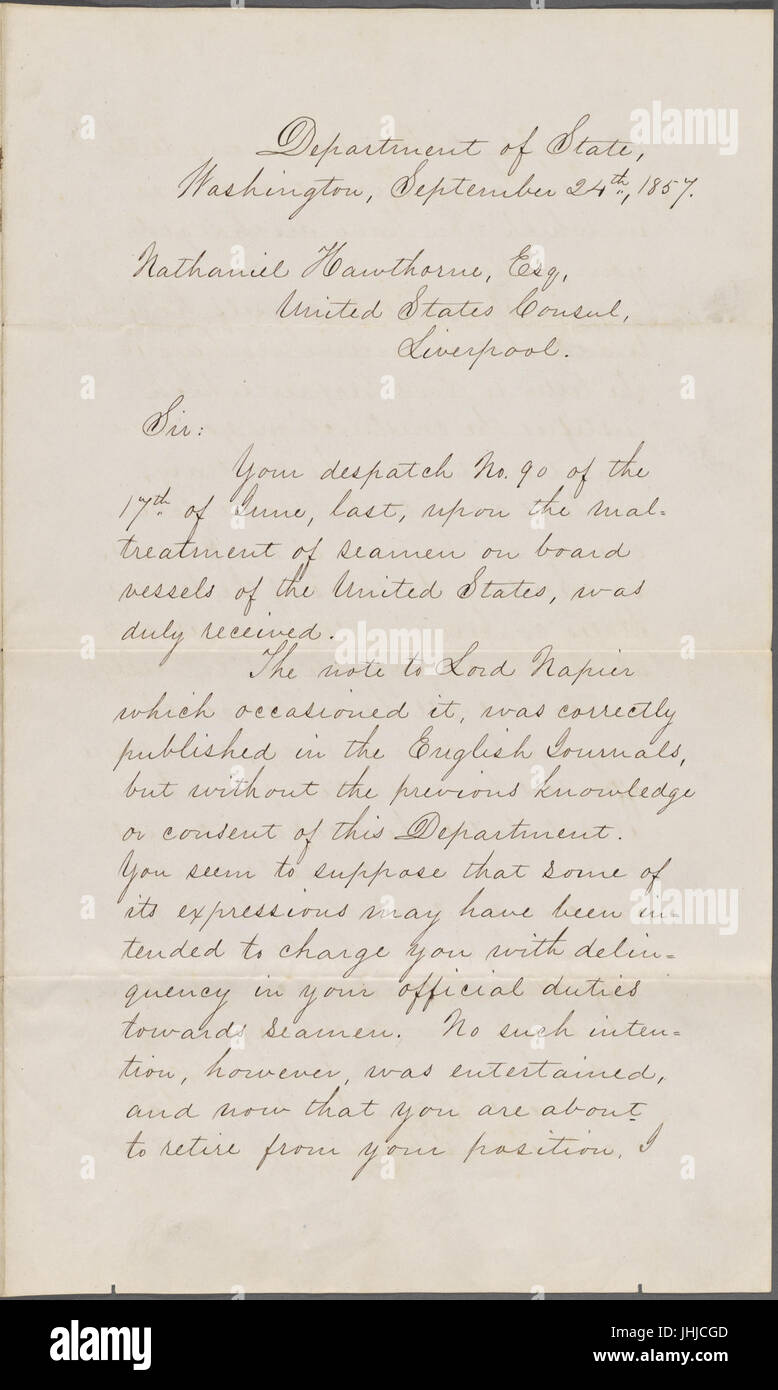 Department of State,
Washington, September 24th, 1857.
Nathaniel Hawthorne, Esq,
United States Consul,
Liverpool.
Sir:
Your despatch No. 90 of the
17th of June, last, upon the mal=
treatment of seamen on board
vessels of the United States, was
duly received.
The note to Lord Napier
which occasioned it, was correctly
published in the English Journals,
but without the previous knowledge
or consent of this Department.
You seem to suppose that some of
its expressions may have been in=
tended to charge you with delin=
quency in your official duties
towards seamen. No such inten=
tion, however, was entertained,
and now that you are about
to retire from your position, I
a alamy
a alamy
a alamy
alamy
Image ID: JHJCGD
www.alamy.com